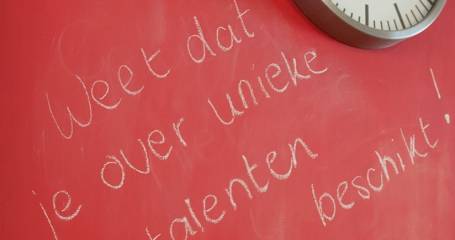 Weet dat
je over unieke
talenten
beschikt!